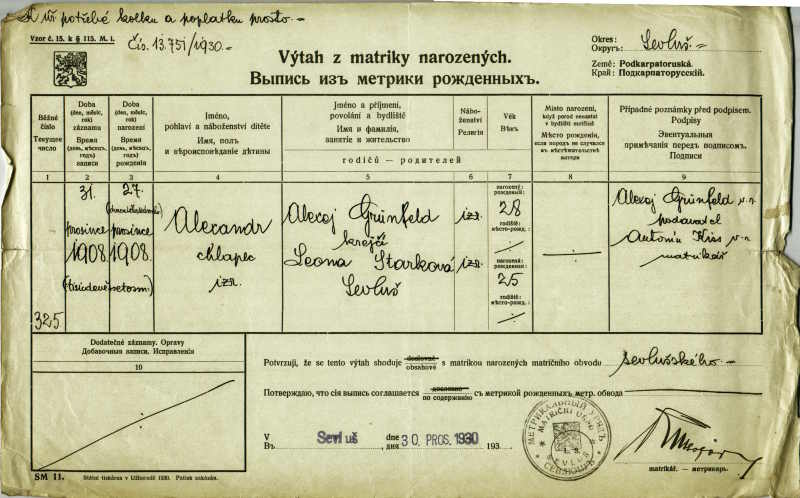 K úř. potřebě kolku a poplatku prosto -
Vzor č. 15. k § 115. M. i.
Čís. 13.751/1930.-
Okres:
Округъ: Sevluš.-
Výtah z matriky narozených.
Выпись изъ метрики рожденныхъ.
Země: Podkarpatoruská.
Край: Подкарпаторусскій.
Běžné číslo
Текущее число
Doba (den, měsíc, rok) záznamu
Время (день, мѣсяц, годъ) записи
Doba (den, měsíc, rok) narození
Время (день, мѣсяц, годъ) рожденія
Jméno, pohlaví a náboženství dítěte
Имя, полъ и вѣроисповѣданіе дѣтины
Jméno a příjmení, povolání a bydliště
Имя и фамилія, занятіе и жительство
Náboženství
Религія
Věk
Вѣкъ
rodičů — родителей
Místo narození, když porod nenastal v bydlišti matčině
Мѣсто рожденія, если породъ не случился въ мѣстѣжительствѣ матери
Případné poznámky před podpisem. Podpisy
Эвентуальныя примѣчанія передъ подписомъ. Подписи
1 2 3 4 5 6 7 8 9
31. prosince 1908 (tisícdevětsetosm)
27. prosince 1908.
Alexandr
chlapec
izr.
Alexej Grünfeld
krejčí
Leona Starková
Sevluš
izr.
izr.
narozený:
рожденный:
28
rodiště:
мѣсто-рожд.:
narozená:
рожденная:
25
rodiště:
мѣсто-рожд.:
Alexej Grünfeld v. r.
podavatel
Antonín Kiss v. r.
matrikář
325
Dodatečné záznamy. Opravy
Добавочныя записи. Исправленія
10
Potvrzuji, že se tento výtah shoduje doslovně obsahově s matrikou narozených matričního obvodu sevlušského.-
Потверждаю, что сія выпись соглашается дословно по содержанію съ метрикой рожденныхъ метр. обвода
V
Въ Sevluš dne
дня 30. PROS. 1930 193
МЕТРИКАЛЬНЫЙ УРЯДЪ
MATRIČNÍ ÚŘAD
SEVLUŠ
СЕВЛЮШЪ
matrikář. — метрикарь.
SM 11. Státní tiskárna v Užhorodě 1930. Pátisk zakázán.